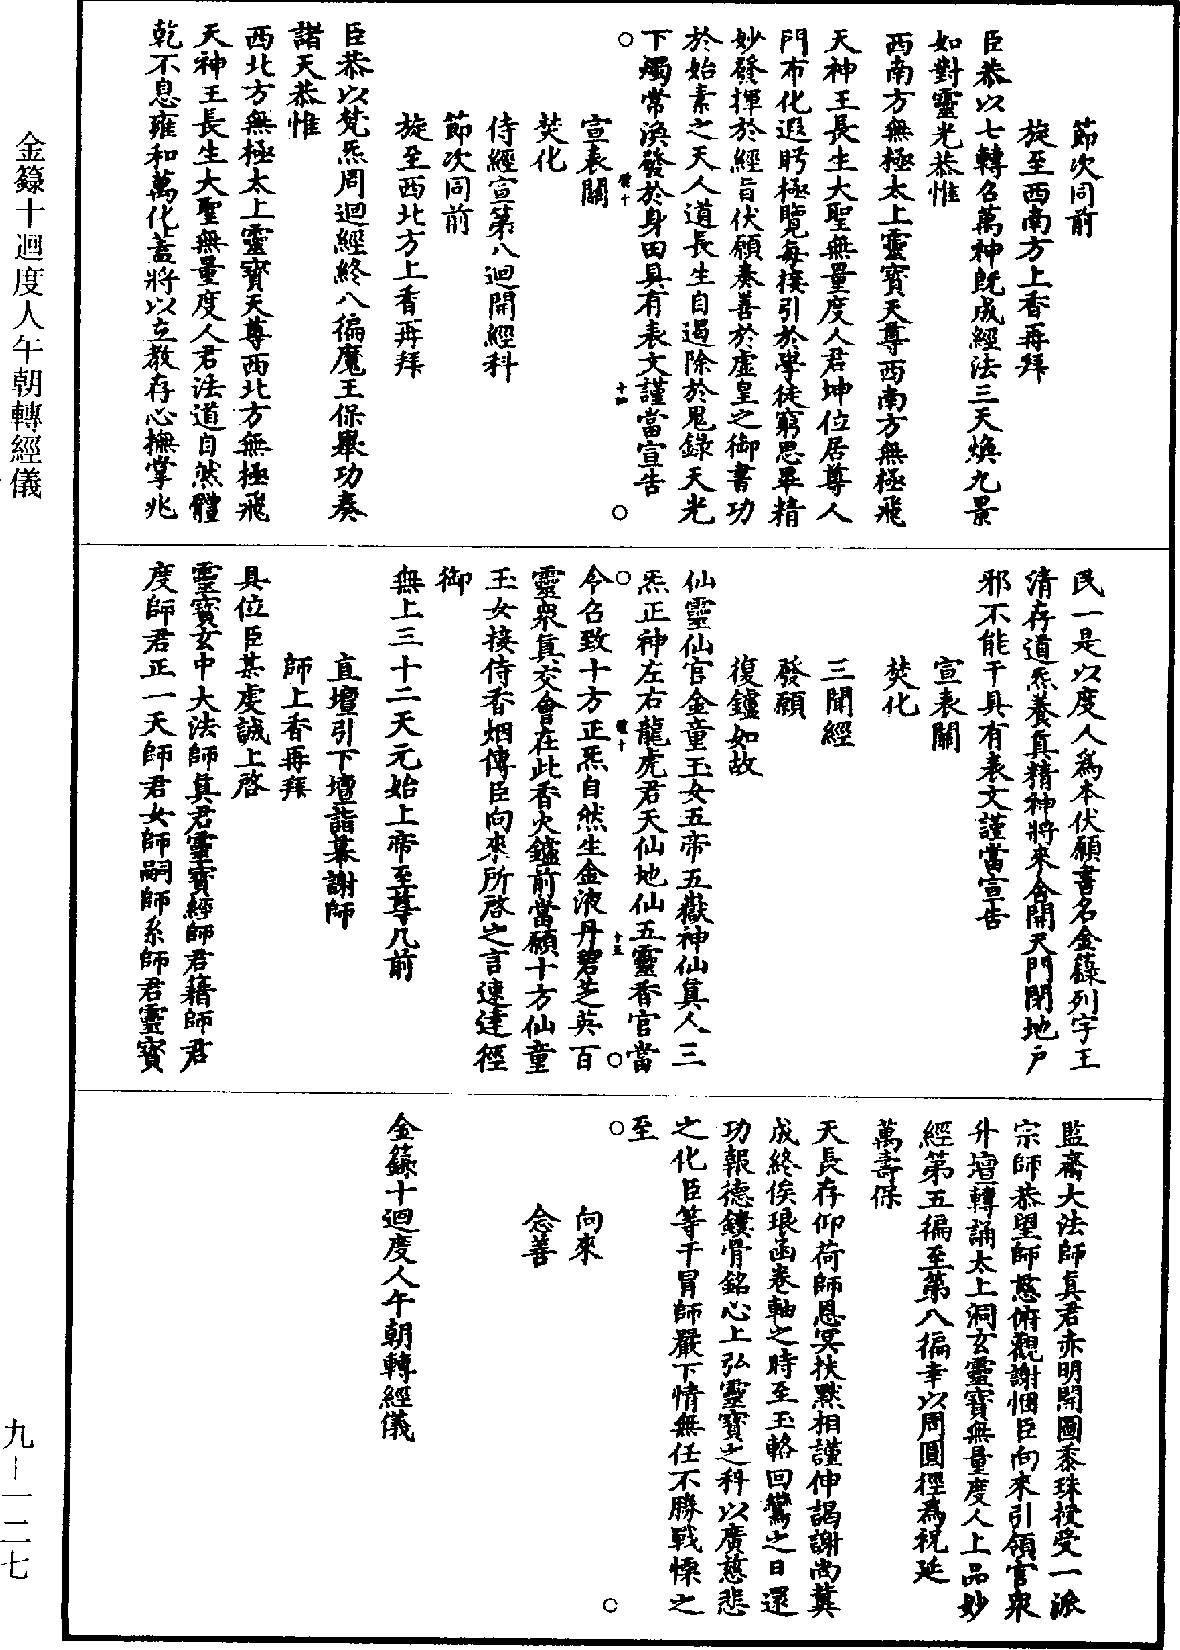 節次同前
旋至西南方上香再拜
臣恭以七轉召萬神旣成經法三天煥九景
如對靈光恭惟
西南方無極太上靈寶天尊西南方無極飛
天神王長生大聖無量度人君坤位居尊人
門布化遐眄極覽每接引於學徒窮思畢精
妙發揮於經旨伏願奏善於虛皇之御書功
於始素之天人道長生自遏除於鬼錄天光
下燭常渙發於身田具有表文謹當宣告
宣表關
焚化
侍經宣第八迴開經科
節次同前
旋至西北方上香再拜
臣恭以梵炁周迴經終八徧魔王保舉功奏
諸天恭惟
西北方無極太上靈寶天尊西北方無極飛
天神王長生大聖無量度人君法道自然體
乾不息雍和萬化蓋將以立教存心撫掌兆
民一是以度人爲本伏願書名金籙列字玉
清存道炁養真精神將來合開天門閉地戶
邪不能干具有表文謹當宣告
宣表關
焚化
三聞經
發願
復鑪如故
仙靈仙官金童玉女五帝五嶽神仙真人三
炁正神左右龍虎君天仙地仙五靈香官當
令召致十方正炁自然生金液丹碧芝英百
靈衆真交會在此香火鑪前當願十方仙童
玉女接侍香烟傳臣向來所啓之言速達徑
御
無上三十二天元始上帝至尊几前
直壇引下壇詣幕謝師
師上香再拜
具位臣某虔誠上啓
靈寶玄中大法師真君靈寶經師君籍師君
度師君正一天師君女師嗣師系師君靈寶
監齋大法師真君赤明開圖黍珠授受一派
宗師恭望師慈俯觀謝悃臣向來引領官衆
升壇轉誦太上洞玄靈寶無量度人上品妙
經第五徧至第八徧幸以周圓徑爲祝延
萬壽保
天長存仰荷師恩冥扶默相謹伸謁謝尚冀
成終俟琅函卷軸之時至玉輅回鸞之日還
功報德鏤骨銘心上弘靈寶之科以廣慈悲
之化臣等干冒師嚴下情無任不勝戰慄之
至
向來
念善
金籙十迴度人午朝轉經儀
金籙十迴度人午朝轉經儀
九—一二七